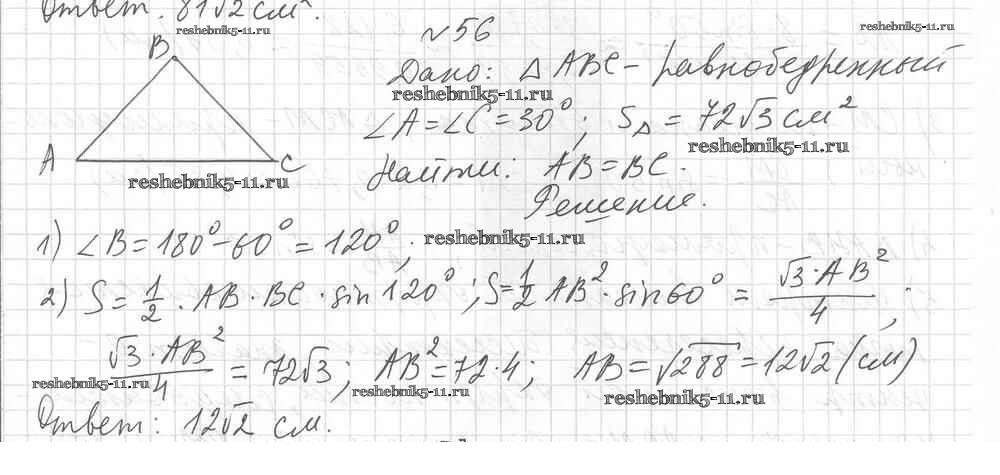 Ответ. 81√2 см².
reshebnik5-11.ru
reshebnik5-11.ru
№56
B
Дано: △ ABC – равнобедренный
reshebnik5-11.ru
∠A = ∠C = 30°; S△ = 72√3 см²
reshebnik5-11.ru
A
C
reshebnik5-11.ru
Найти: AB = BC.
Решение.
1) ∠B = 180° – 60° = 120°;
reshebnik5-11.ru
2) S = 1/2 · AB · BC · sin 120°; S = 1/2 AB² · sin 60° = √3 · AB²/4;
√3 · AB²/4 = 72√3; AB² = 72 · 4; AB = √288 = 12√2 (см)
reshebnik5-11.ru
reshebnik5-11.ru
reshebnik5-11.ru
Ответ: 12√2 см.